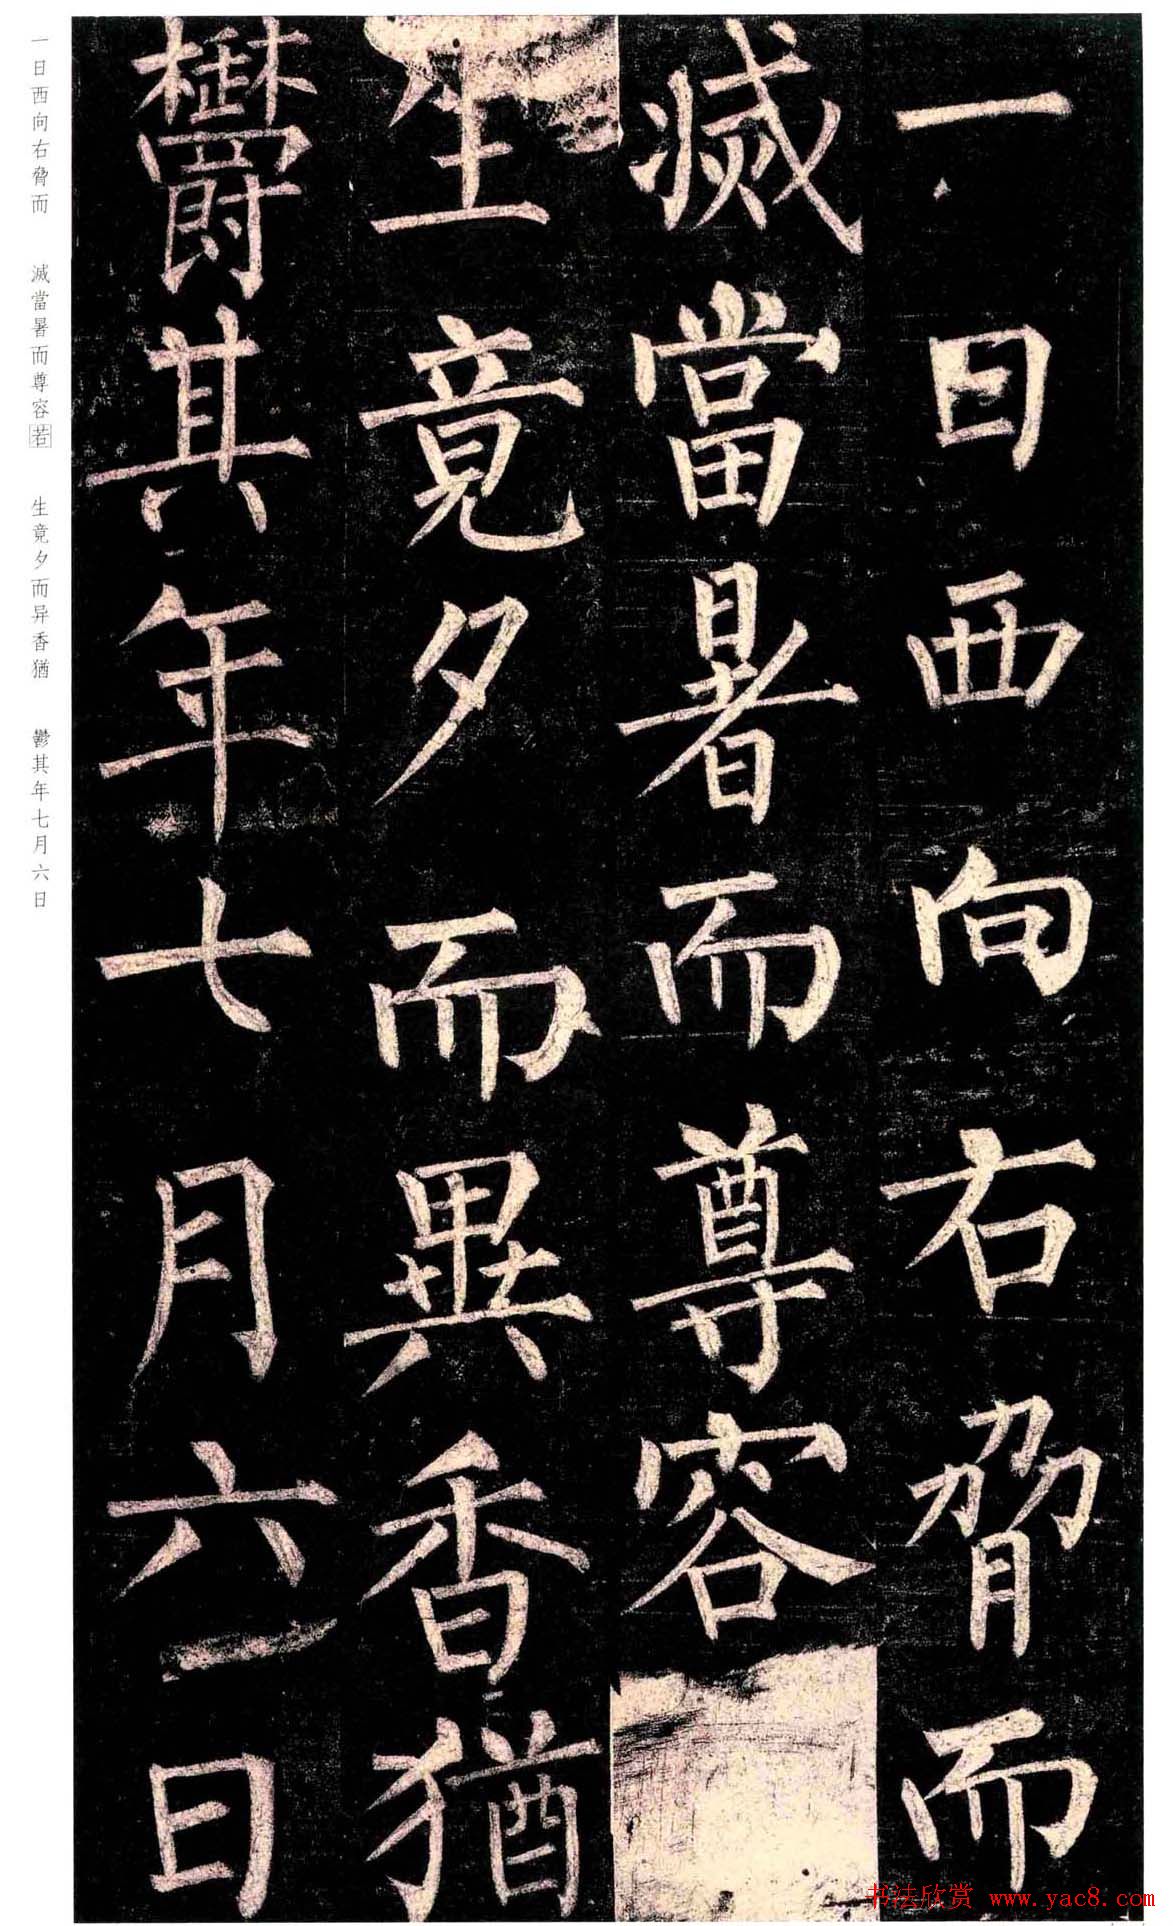 一日西向右脅而
滅當暑而尊容
生竟夕而異香猶
欝其年七月六日
一日西向右脅而 滅當暑而尊容若 生竟夕而异香猶 鬱其年七月六日
书法欣赏 www.yac8.com